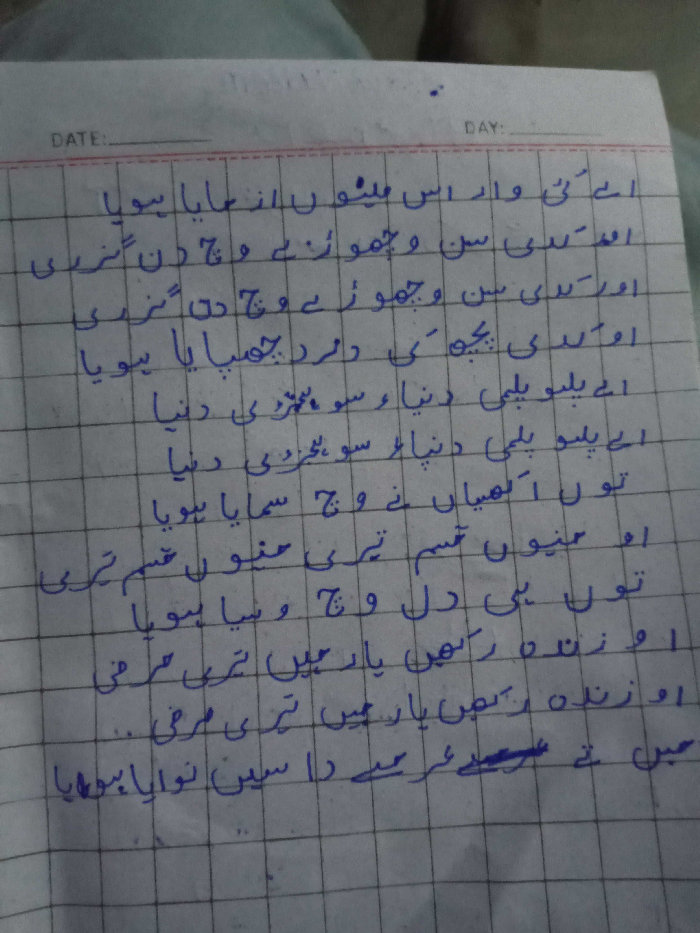 DATE: DAY:
اے کئی وار اس مینوں ازمایا ہویا
او کدی سن وچھوڑے وچ دن گزری
اور کدی سن وچھوڑے وچ دن گزری
او کدی پچھ کی درد چھپایا ہویا
اے پلیو پلی دنیاء سو ہجڑی دنیا
اے پلیو پلی دنیاء سو ہجڑی دنیا
توں اکھیاں نے وچ سمایا ہویا
او منیوں قسم تیری منیوں قسم تیری
توں ہی دل وچ وسیا ہویا
او زندہ رکھیں یار میں تیری مرضی
او زندہ رکھیں یار میں تیری مرضی ..
میں تے عرصے دا سین نوایا ہویا